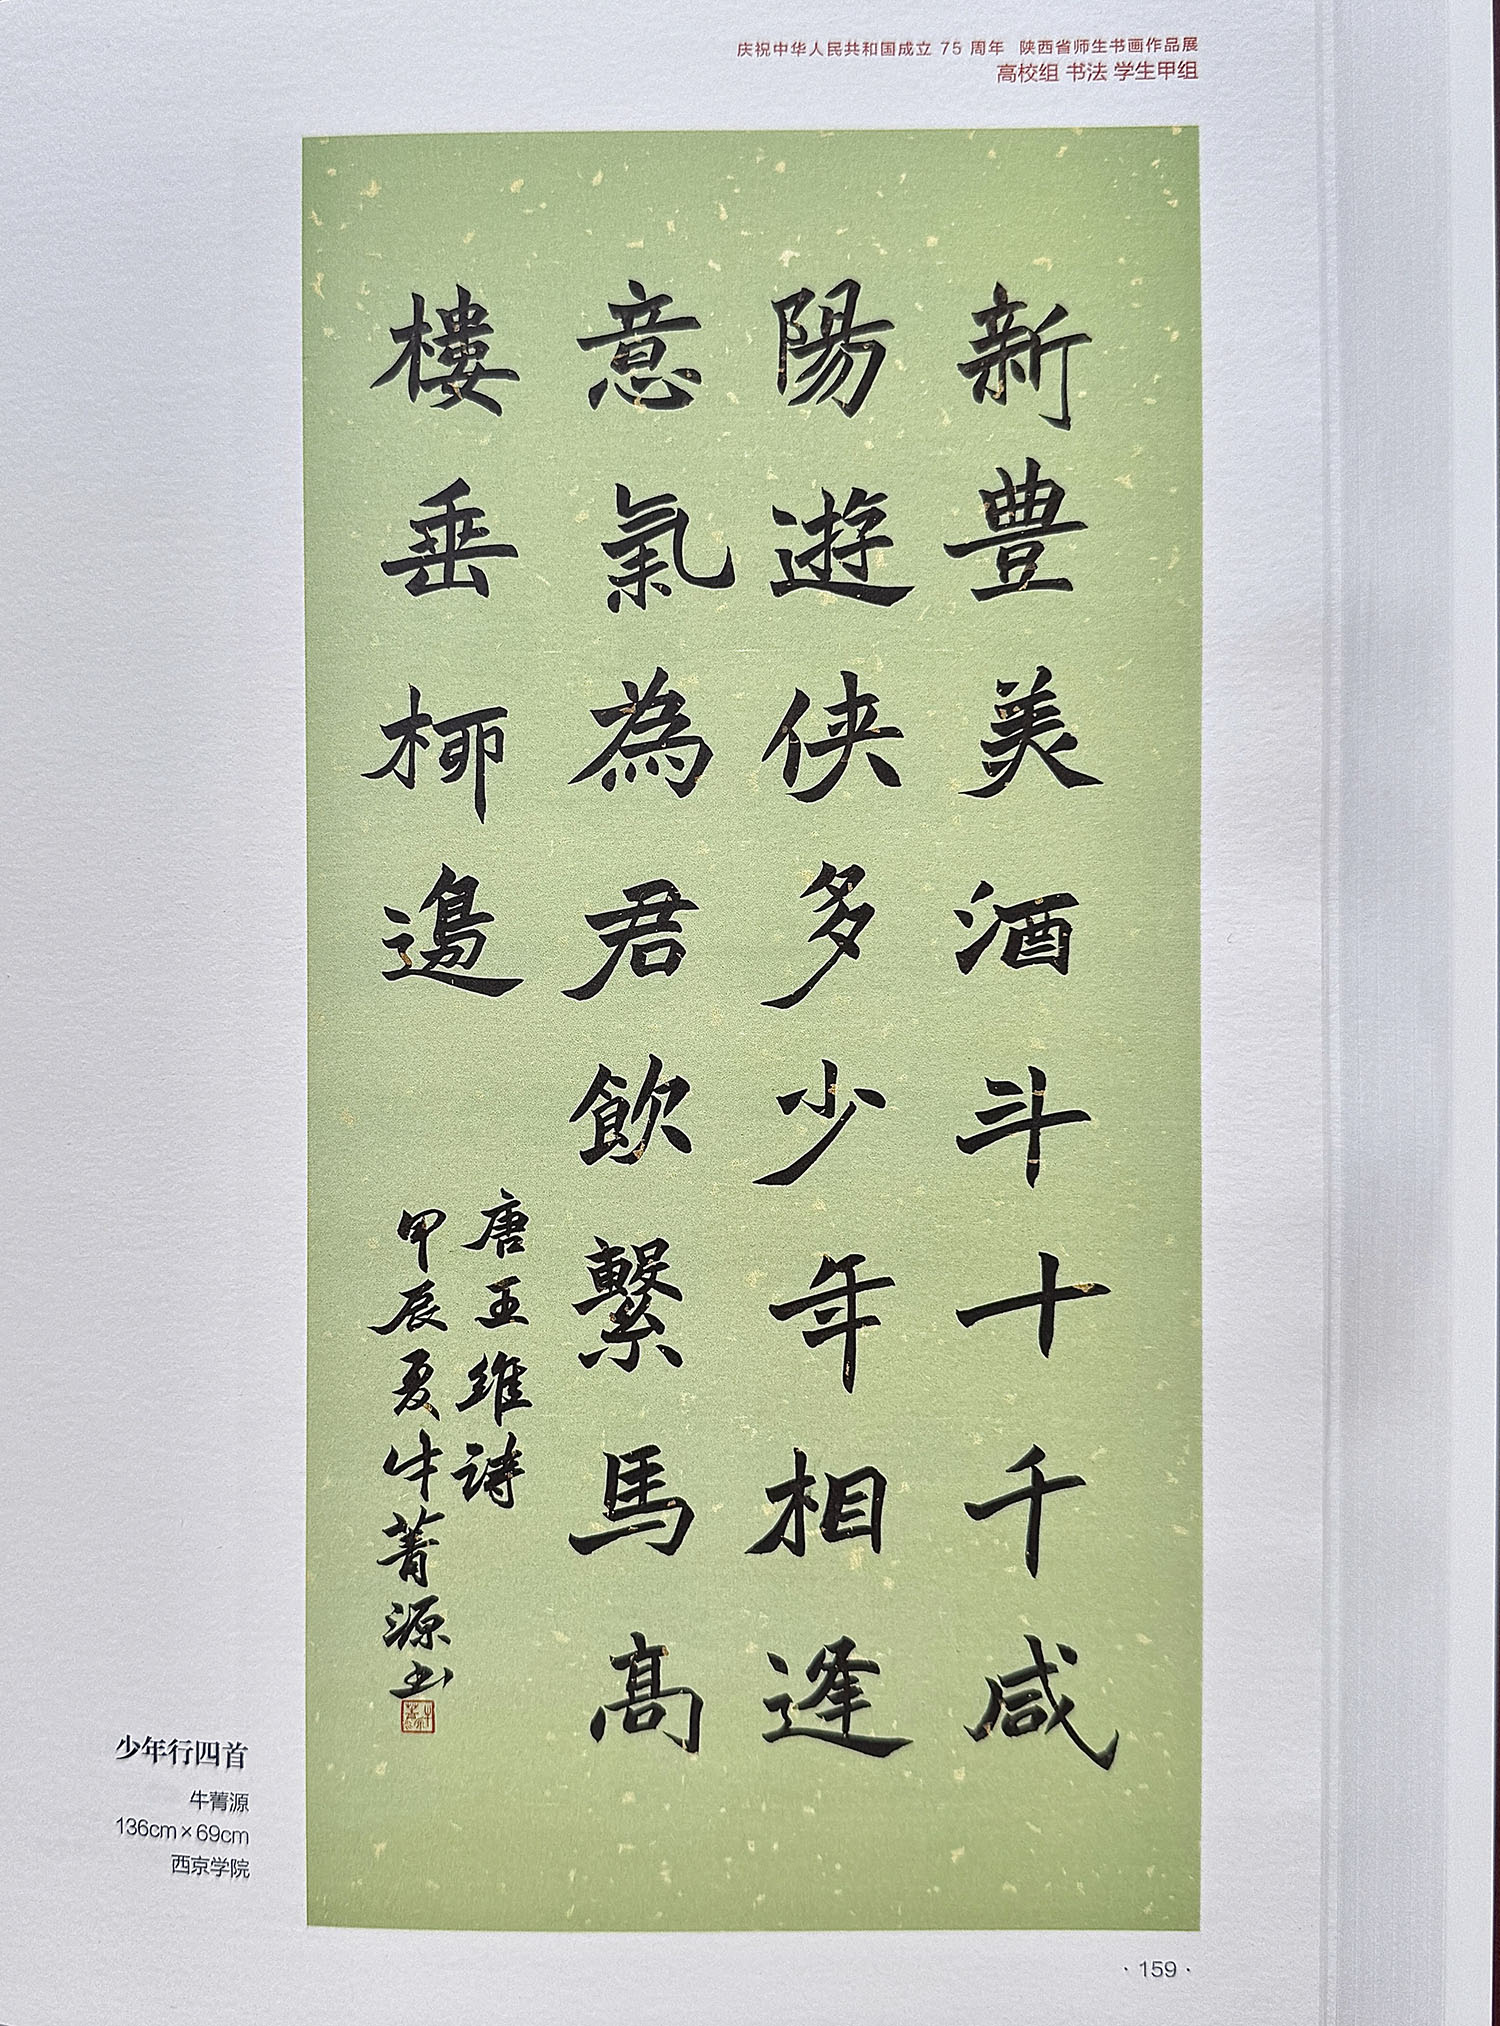 庆祝中华人民共和国成立 75 周年 陕西省师生书画作品展
高校组 书法 学生甲组
新豊美酒斗十千咸
陽遊侠多少年相逢
意氣為君飲繫馬高
樓垂柳邉
唐王維詩
甲辰夏牛菁源书
少年行四首
牛菁源
136cm×69cm
西京学院
·159·